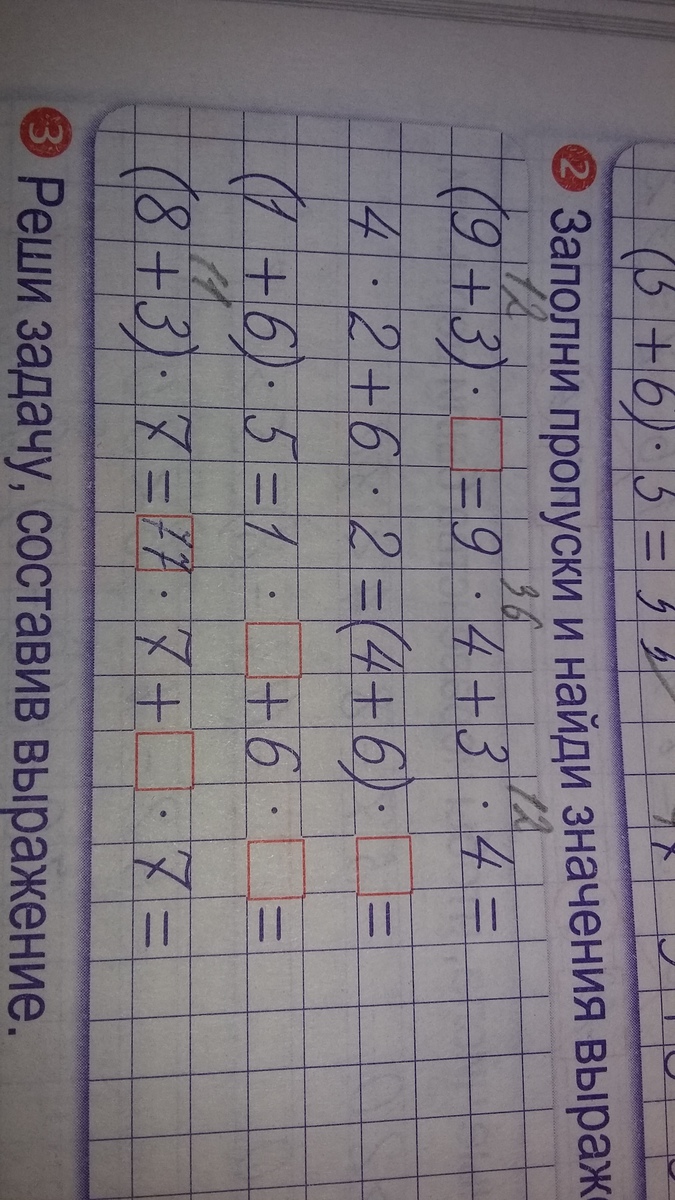 (5 + 6) · 5 = 5 5
2 Заполни пропуски и найди значения выраж
12 36 12
(9 + 3) · □ = 9 · 4 + 3 · 4 =
4 · 2 + 6 · 2 = (4 + 6) · □ =
(1 + 6) · 5 = 1 · □ + 6 · □ =
11
(8 + 3) · 7 = 77 · 7 + □ · 7 =
3 Реши задачу, составив выражение.